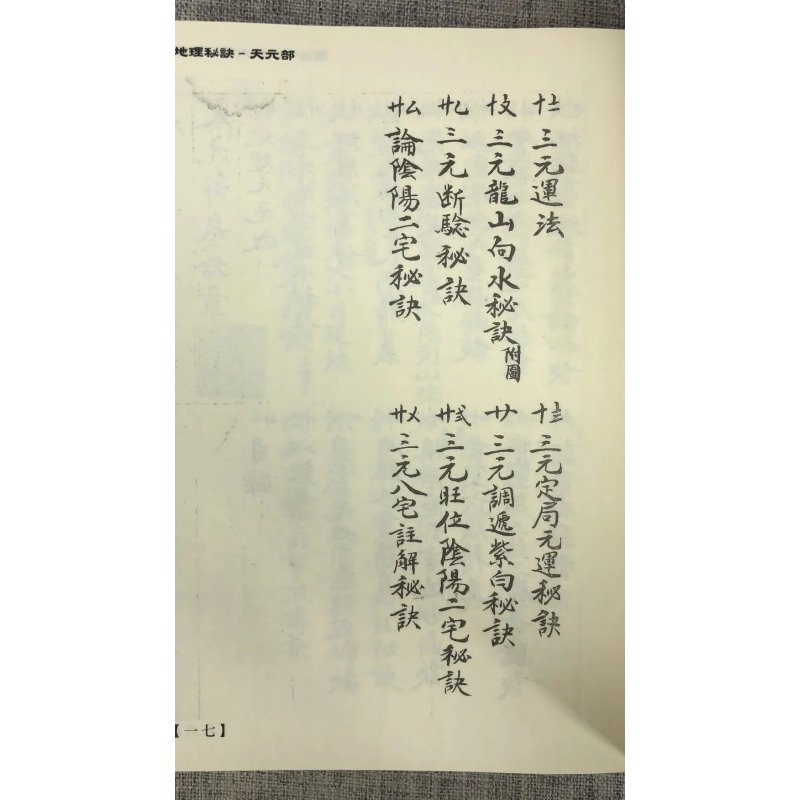 地理秘訣－天元部
十〧三元運法
十〨三元定局元運秘訣
十〩三元龍山向水秘訣附圖
廿三元調遞紫白秘訣
廿乚三元断騐秘訣
廿弍三元旺位陰陽二宅秘訣
廿厶論陰陽二宅秘訣
廿〤三元八宅註解秘訣
【一七】